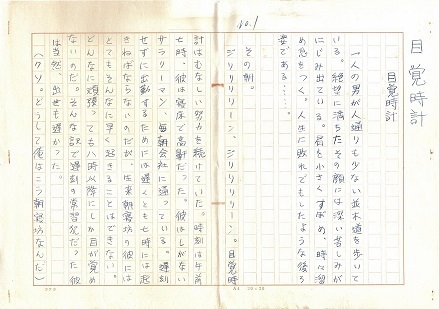 no.1
目覚時計
目覚時計
一人の男が人通りも少ない並木道を歩いて
いる。絶望に満ちたその顔には深い苦しみが
にじみ出ている。肩を小さくすぼめ、時々溜
め息をつく。人生に敗れでもしたような後ろ
姿である……。
その朝。
ジリリリリーン、ジリリリリーン。目覚時
計はむなしい努力を続けていた。時刻は午前
七時、彼は寝床で高鼾だった。彼はしがない
サラリーマン、毎朝会社に通っている。遅刻
せずに出勤するためには遅くとも七時には起
きねばならないのだが、生来朝寝坊の彼には
とてもそんなに早く起きることはできない。
どんなに頑張っても八時以降にしか目が覚め
ないのだ。そんな訳で遅刻の常習犯だった彼
は当然、出世も遅かった。
(クソ。どうして俺はこう朝寝坊なんだ)